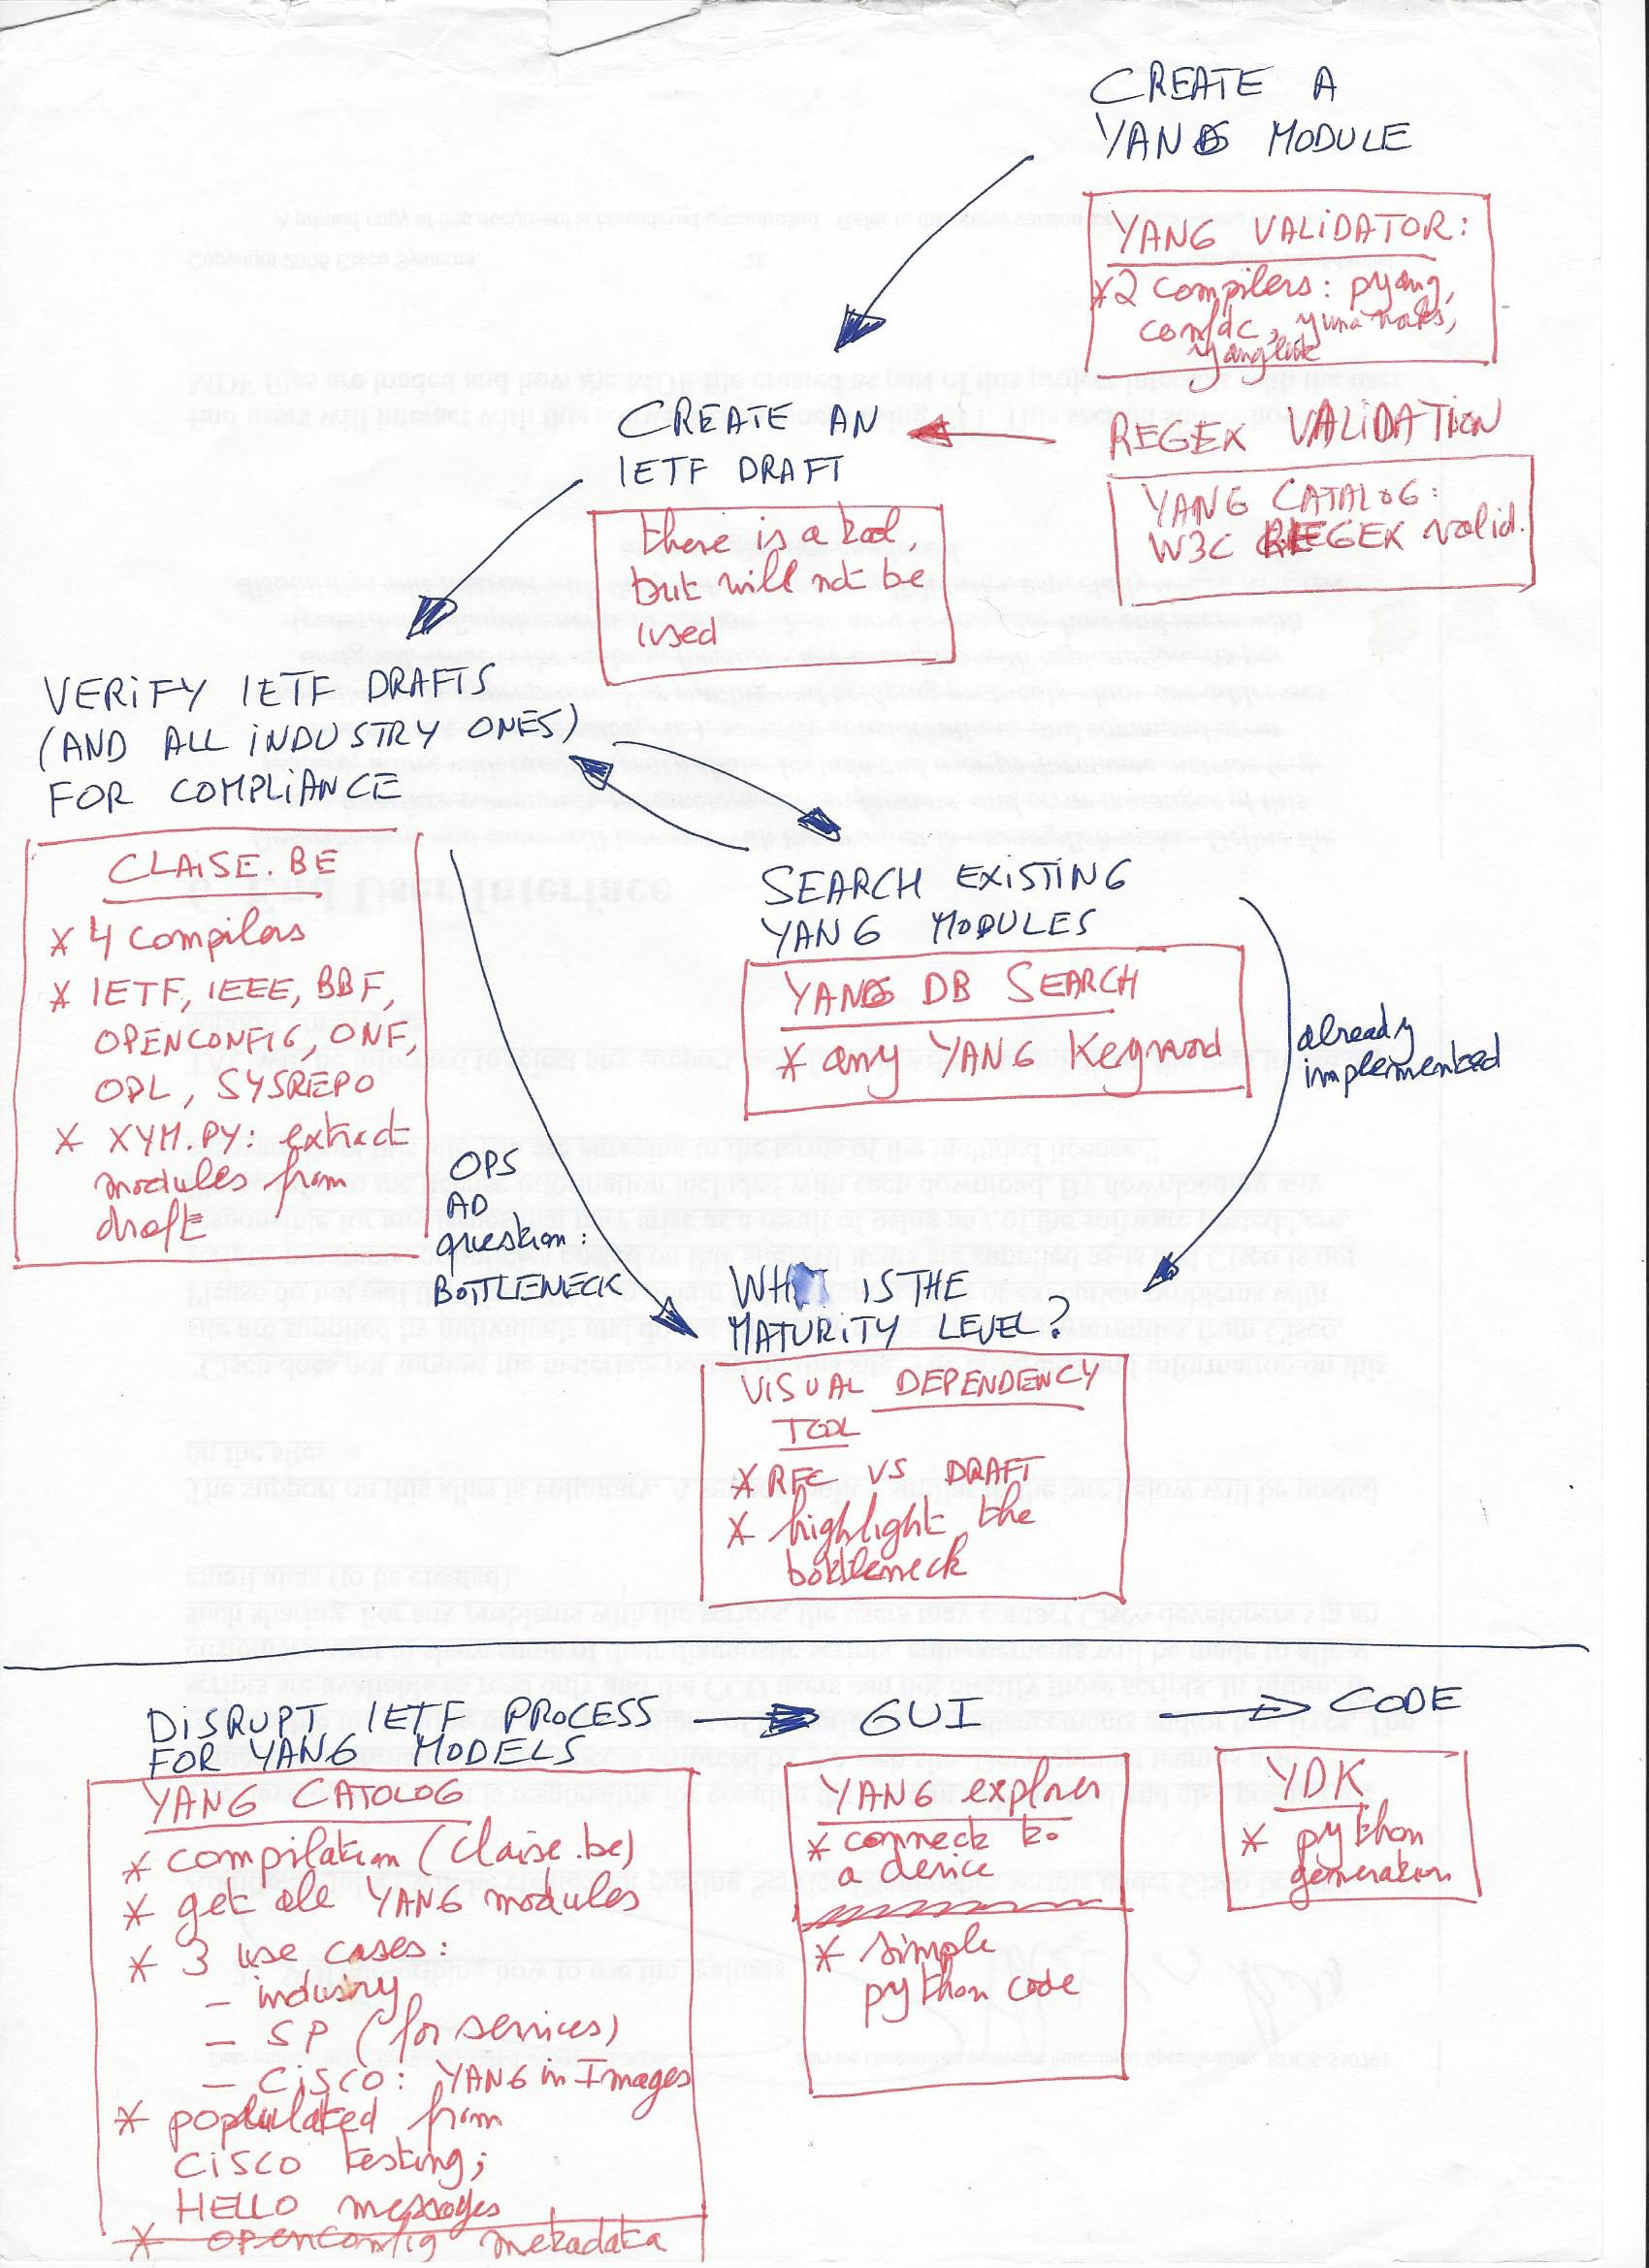 CREATE A
YANG MODULE
YANG VALIDATOR:
* 2 compilers: pyang,
confdc, yumaworks,
yanglint
CREATE AN
IETF DRAFT
REGEX VALIDATION
YANG CATALOG:
W3C REGEX valid.
there is a tool,
but will not be
used
VERIFY IETF DRAFTS
(AND ALL INDUSTRY ONES)
FOR COMPLIANCE
CLAISE.BE
* 4 compilers
* IETF, IEEE, BBF,
OPENCONFIG, ONF,
ODL, SYSREPO
* XYM.PY: extract
modules from
draft
SEARCH EXISTING
YANG MODULES
YANG DB SEARCH
* any YANG Keyword
already
implemented
OPS
AD
question:
BOTTLENECK
WHAT IS THE
MATURITY LEVEL?
VISUAL DEPENDENCY
TOOL
* RFC VS DRAFT
* highlight the
bottleneck
DISRUPT IETF PROCESS
FOR YANG MODELS
GUI
CODE
YANG CATOLOG
* compilation (claise.be)
* get all YANG modules
* 3 use cases:
- industry
- SP (for services)
- CISCO: YANG in Images
* populated from
CISCO testing;
HELLO messages
* openconfig metadata
YANG explorer
* connect to
a device
* simple
python code
YDK
* python
generation